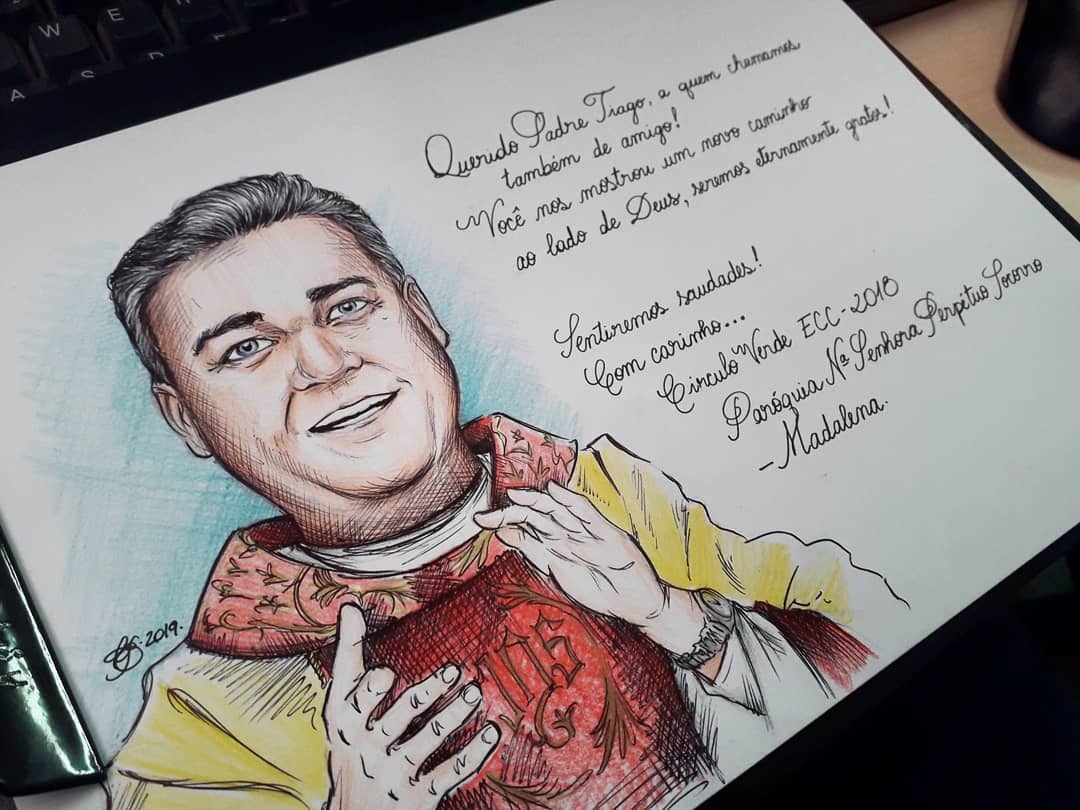 W
E
A
S
D
Querido Padre Tiago, a quem chamamos
também de amigo!
Você nos mostrou um novo caminho
ao lado de Deus, seremos eternamente gratos!
Sentiremos saudades!
Com carinho...
Circulo Verde ECC-2018
Paróquia Nª Senhora Perpétuo Socorro
- Madalena.
2019.